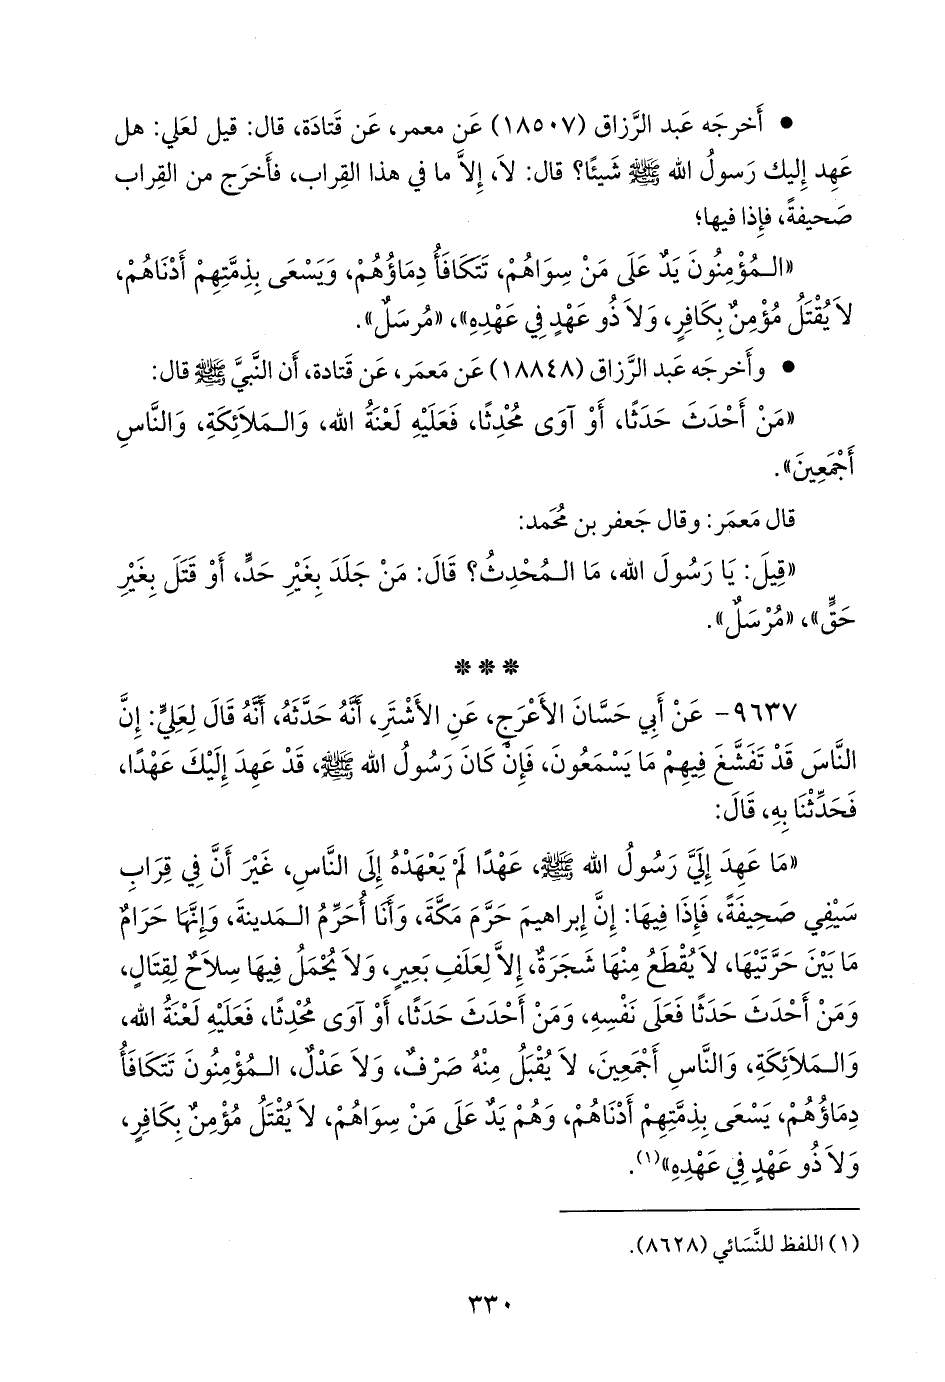 • أَخرجَه عَبد الرَّزاق (١٨٥٠٧) عَن معمر، عَن قَتادَة، قال: قيل لعَلي: هل
عَهِد إِليك رَسولُ الله ﷺ شَيئًا؟ قال: لاَ، إِلاَّ ما في هذا القِراب، فأَخرَج من القِراب
صَحيفةً، فإِذا فيها؛
«الـمُؤْمِنُونَ يَدٌ عَلَى مَنْ سِوَاهُمْ، تَتَكَافَأُ دِمَاؤُهُمْ، وَيَسْعَى بِذِمَّتِهِمْ أَدْنَاهُمْ،
لاَ يُقْتَلُ مُؤْمِنٌ بِكَافِرٍ، وَلاَ ذُو عَهْدٍ فِي عَهْدِهِ»، «مُرسَلٌ».
• وأَخرجَه عَبد الرَّزاق (١٨٨٤٨) عَن مَعمَر، عَن قَتادة، أَن النَّبيَّ ﷺ قال:
«مَنْ أَحْدَثَ حَدَثًا، أَوْ آوَى مُحْدِثًا، فَعَلَيْهِ لَعْنَةُ الله، وَالـمَلاَئِكَةِ، وَالنَّاسِ
أَجْمَعِينَ».
قال مَعمَر: وقال جَعفر بن مُحَمد:
«قِيلَ: يَا رَسُولَ الله، مَا الـمُحْدِثُ؟ قَالَ: مَنْ جَلَدَ بِغَيْرِ حَدٍّ، أَوْ قَتَلَ بِغَيْرِ
حَقٍّ»، «مُرْسَلٌ».
***
٩٦٣٧- عَنْ أَبِي حَسَّانَ الأَعْرَجِ، عَنِ الأَشْتَرِ، أَنَّهُ حَدَّثَهُ، أَنَّهُ قَالَ لِعَلِيٍّ: إِنَّ
النَّاسَ قَدْ تَفَشَّغَ فِيهِمْ مَا يَسْمَعُونَ، فَإِنْ كَانَ رَسُولُ الله ﷺ، قَدْ عَهِدَ إِلَيْكَ عَهْدًا،
فَحَدِّثْنَا بِهِ، قَالَ:
«مَا عَهِدَ إِلَيَّ رَسُولُ الله ﷺ، عَهْدًا لَمْ يَعْهَدْهُ إِلَى النَّاسِ، غَيْرَ أَنَّ فِي قِرَابِ
سَيْفِي صَحِيفَةً، فَإِذَا فِيهَا: إِنَّ إِبراهِيمَ حَرَّمَ مَكَّةَ، وَأَنَا أُحَرِّمُ الـمَدينةَ، وَإِنَّهَا حَرَامٌ
مَا بَيْنَ حَرَّتَيْهَا، لاَ يُقْطَعُ مِنْهَا شَجَرَةٌ، إِلاَّ لِعَلَفِ بَعِيرٍ، وَلاَ يُحْمَلُ فِيهَا سِلاَحٌ لِقِتَالٍ،
وَمَنْ أَحْدَثَ حَدَثًا فَعَلَى نَفْسِهِ، وَمَنْ أَحْدَثَ حَدَثًا، أَوْ آوَى مُحْدِثًا، فَعَلَيْهِ لَعْنَةُ الله،
وَالـمَلاَئِكَةِ، وَالنَّاسِ أَجْمَعِينَ، لاَ يُقْبَلُ مِنْهُ صَرْفٌ، وَلاَ عَدْلٌ، الـمُؤْمِنُونَ تَتَكَافَأُ
دِمَاؤُهُمْ، يَسْعَى بِذِمَّتِهِمْ أَدْنَاهُمْ، وَهُمْ يَدٌ عَلَى مَنْ سِوَاهُمْ، لاَ يُقْتَلُ مُؤْمِنٌ بِكَافِرٍ،
وَلاَ ذُو عَهْدٍ فِي عَهْدِهِ»(١).
(١) اللفظ للنَّسَائي (٨٦٢٨).
٣٣٠